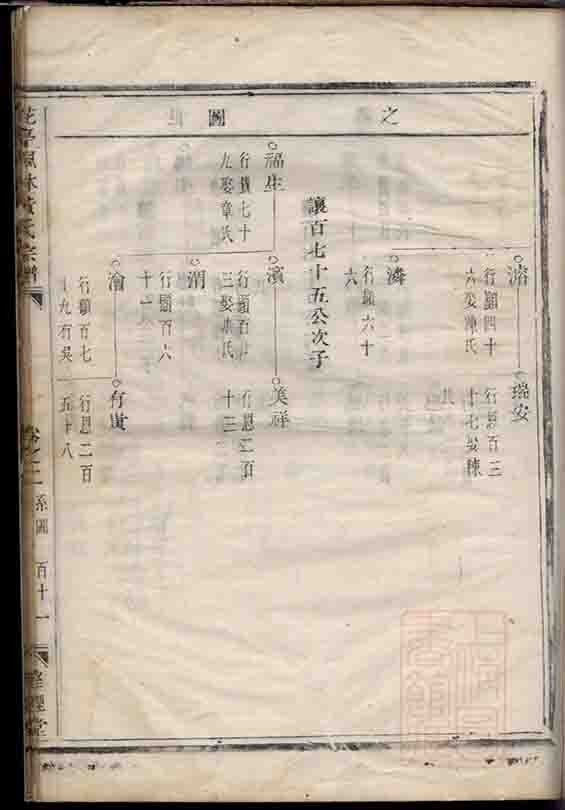 之 圖
溶
行顯四十
六娶陳氏
瑞安
行恩百三
十七娶陳
氏
潾
行顯六十
六
讓百七十五公次子
福生
行貴七十
九娶章氏
濱
行顯百
三娶朱氏
美祥
行恩二百
十三
渭
行顯百六
十一
渝
行顯百七
十九有吳
有寅
行恩二百
五十八
黃氏宗譜
卷之二
系圖
百十一